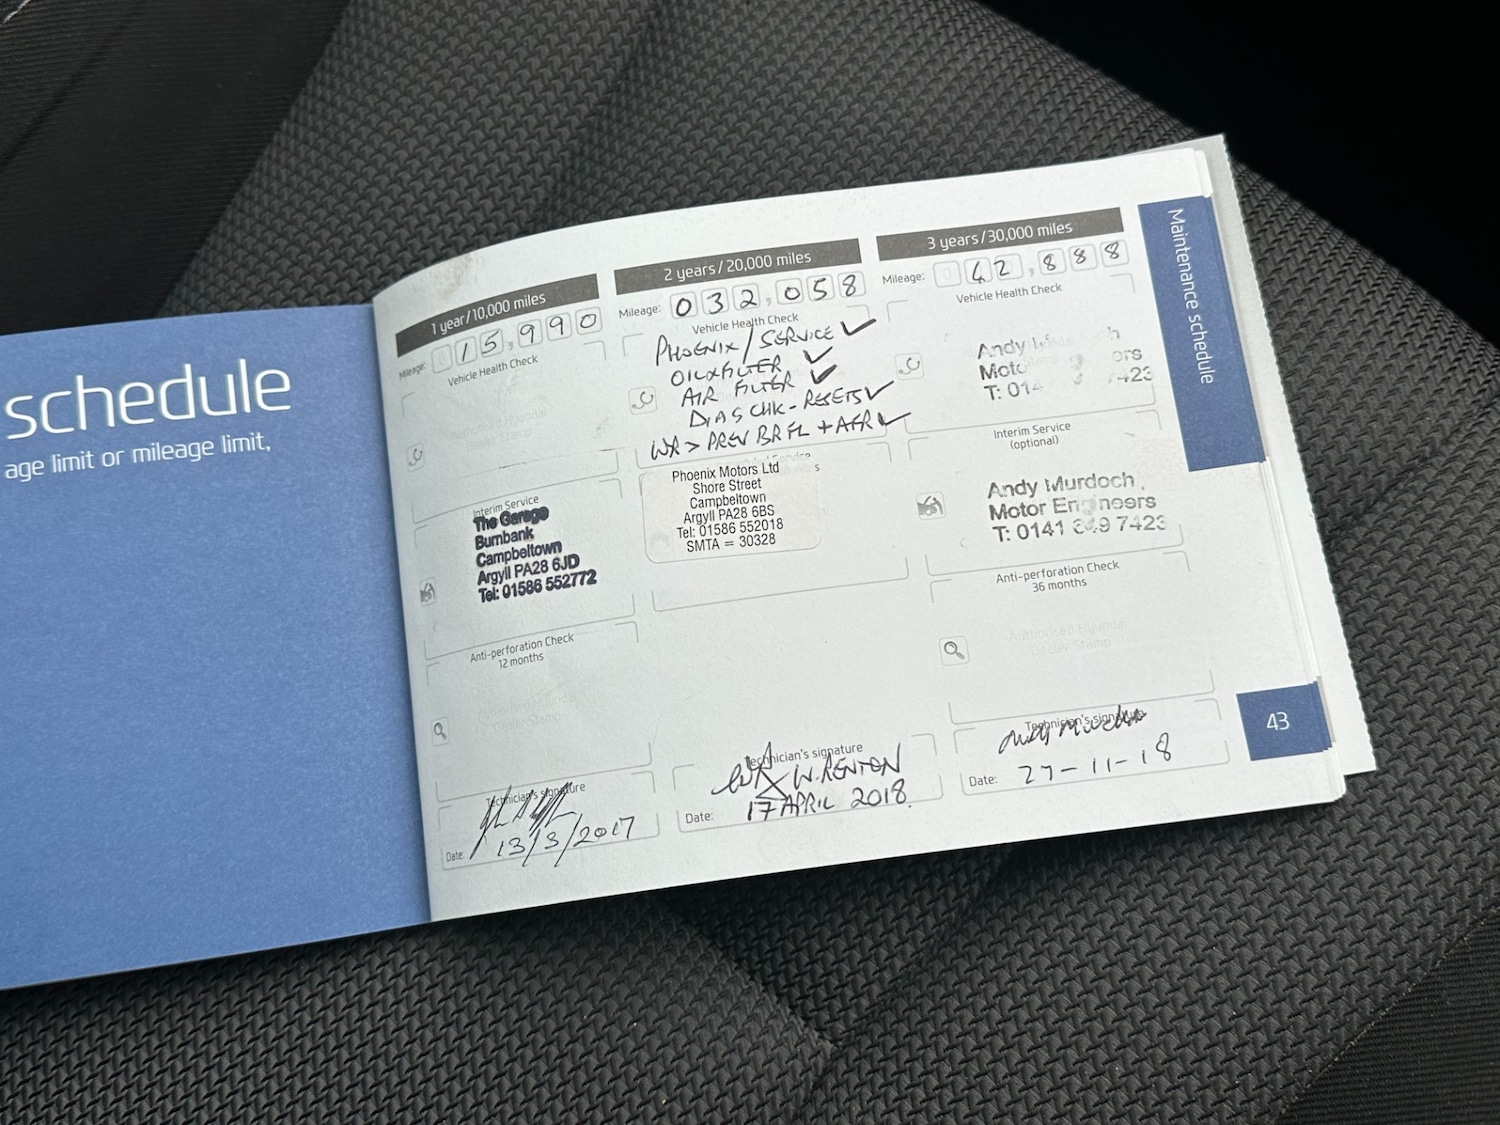 schedule
age limit or mileage limit,
1 year/10,000 miles
Mileage: 15,990
Vehicle Health Check
Interim Service
The Garage
Burnbank
Campbeltown
Argyll PA28 6JD
Tel: 01586 552772
Anti-perforation Check
12 months
Technician's signature
Date: 13/3/2017
2 years/20,000 miles
Mileage: 032,058
Vehicle Health Check
PHOENIX/SERVICE ✓
OIL+FILTER ✓
AIR FILTER ✓
DIAG CHK-RESETS ✓
WR > PREV BR FL + AFR ✓
Phoenix Motors Ltd
Shore Street
Campbeltown
Argyll PA28 6BS
Tel: 01586 552018
SMTA = 30328
Technician's signature
W. RENTON
Date: 17 APRIL 2018.
3 years/30,000 miles
Mileage: 42,888
Vehicle Health Check
Andy
T: 014 423
Interim Service
(optional)
Andy Murdoch
Motor Engineers
T: 0141 849 7423
Anti-perforation Check
36 months
Authorised Hyundai
Dealer Stamp
Technician's signature
Date: 27-11-18
Maintenance schedule
43